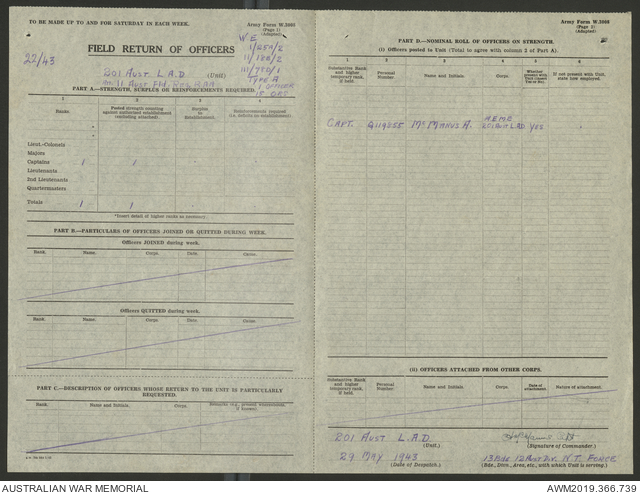 TO BE MADE UP TO AND FOR SATURDAY IN EACH WEEK.
Army Form W.3008
(Page 1)
(Adapted)
22/43
FIELD RETURN OF OFFICERS
W.E.
1/454/2
11/188/2
111/750/1
TYPE A
1 OFFICER
15 ORS
201 AUST L.A.D (Unit)
PART A.—STRENGTH, SURPLUS OR REINFORCEMENTS REQUIRED.
1 2 3 4
Ranks.
Posted strength counting against authorised establishment (excluding attached).
Surplus to Establishment.
Reinforcements required (i.e. deficits on establishment).
Lieut.-Colonels
Majors
Captains 1 1
Lieutenants
2nd Lieutenants
Quartermasters
Totals 1 1
*Insert detail of higher ranks as necessary.
PART B.—PARTICULARS OF OFFICERS JOINED OR QUITTED DURING WEEK.
Officers JOINED during week.
Rank. Name. Corps. Date. Cause.
Officers QUITTED during week.
Rank. Name. Corps. Date. Cause.
PART C.—DESCRIPTION OF OFFICERS WHOSE RETURN TO THE UNIT IS PARTICULARLY REQUESTED.
Rank. Name and Initials. Corps.
Army Form W.3008
(Page 2)
(Adapted)
PART D.—NOMINAL ROLL OF OFFICERS ON STRENGTH.
(i) Officers posted to Unit (Total to agree with column 2 of Part A).
1 2 3 4 5 6
Substantive Rank and higher temporary rank, if held.
Personal Number.
Name and Initials.
Corps.
Whether present with Unit. (Insert Yes or No).
If not present with Unit, state how employed.
CAPT. Q119255 McMANUS A. AEME 201 AUST LAD YES
(ii) OFFICERS ATTACHED FROM OTHER CORPS.
Substantive Rank and higher temporary rank, if held.
Personal Number.
Name and Initials.
Corps.
Date of attachment.
Nature of attachment.
201 AUST L.A.D
(Unit.)
(Signature of Commander.)
29 MAY 1943
(Date of Despatch.)
13 Bde 12 Aust Div. N.T. FORCE
(Bde., Divn., Area, etc., with which Unit is serving.)
AUSTRALIAN WAR MEMORIAL
AWM2019.366.739